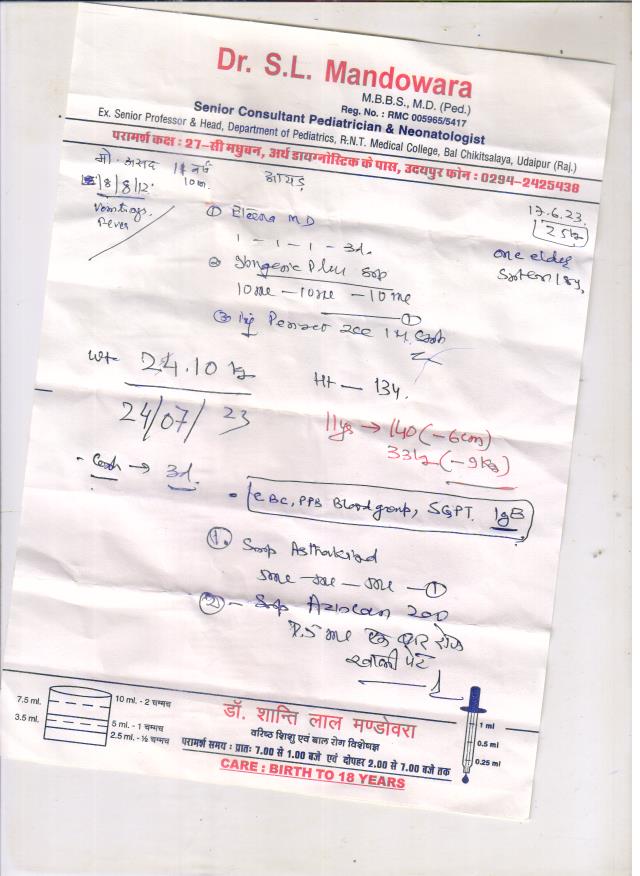 Dr. S.L. Mandowara
M.B.B.S., M.D. (Ped.)
Reg. No. : RMC 005965/5417
Senior Consultant Pediatrician & Neonatologist
Ex. Senior Professor & Head, Department of Pediatrics, R.N.T. Medical College, Bal Chikitsalaya, Udaipur (Raj.)
परामर्श कक्ष : 27-सी मधुवन, अर्थ डायग्नोस्टिक के पास, उदयपुर फोन : 0294-2425438
मो. असद
10 m.
17.6.23.
25 kg
8/8/12
Vomitings.
Fever
one elder
① MD
1 - 1 - 1 - 3d.
② Plus Syp
10 ml - 10 ml - 10 ml
①
③ Inj 2cc I.M.
Wt 24.10 kg
Ht - 134.
24/07/23
11 ys → 140 (-6cm)
33 kg (-9 kg)
→ 3d.
CBC, PPB Blood group, SGPT. IgE
①. Syp Asthakind
5ml - 5ml - 5ml - ①
② - Syp 200
7.5 ml एक बार रोज
खाली पेट
7.5 ml.
3.5 ml.
10 ml. - 2 चम्मच
5 ml. - 1 चम्मच
2.5 ml. - ½ चम्मच
डॉ. शान्ति लाल मण्डोवरा
वरिष्ठ शिशु एवं बाल रोग विशेषज्ञ
परामर्श समय : प्रातः 7.00 से 1.00 बजे एवं दोपहर 2.00 से 7.00 बजे तक
CARE : BIRTH TO 18 YEARS
1 ml
0.5 ml
0.25 ml